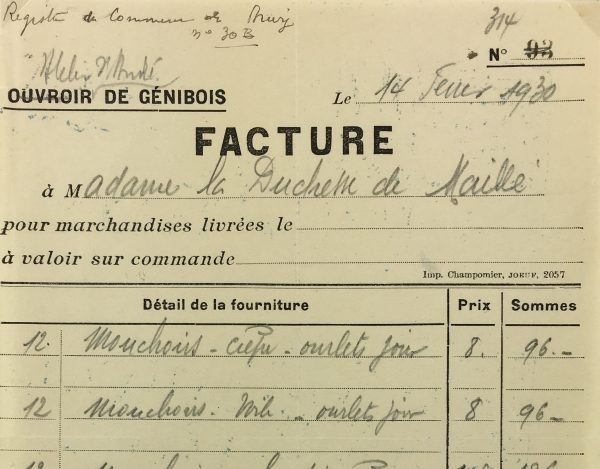 Registre du Commerce de Briey
n° 30B
314
N° 92
OUVROIR DE GÉNIBOIS
Le 14 Fevrier 1930
FACTURE
à Madame la Duchesse de Maillé
pour marchandises livrées le
à valoir sur commande
Imp. Champomier, JOEUF, 2057
Détail de la fourniture Prix Sommes
12. Mouchoirs - crêpe - ourlets jour 8. 96.-
12 Mouchoirs - - ourlets jour 8 96-